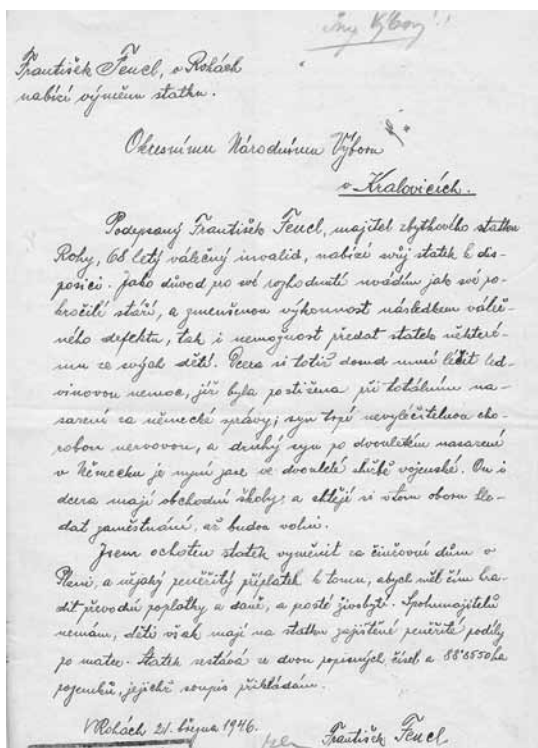 František Fencl, v Rohách
nabízí výměnu statku.
Okresnímu Národnímu Výboru
v Kralovicích.
Podepsaný František Fencl, majitel zbytkového statku
Rohy, 68 letý válečný invalid, nabízí svůj statek k dis-
posici. Jako důvod pro své rozhodnutí uvádím jak své po-
kročilé stáří, a zmenšenou výkonnost následkem váleč-
ného defektu, tak i nemožnost předat statek některé-
mu ze svých dětí. Dcera si totiž dosud musí léčit led-
vinovou nemoc, jíž byla postižena při totálním na-
sazení za německé správy; syn trpí nevyléčitelnou cho-
robou nervovou, a druhý syn po dvouletém nasazení
v Německu je nyní zase ve dvouleté službě vojenské. On i
dcera mají obchodní školy, a chtějí si v tom oboru hle-
dat zaměstnání, až budou volni.
Jsem ochoten statek vyměnit za činžovní dům v
Plzni, a nějaký peněžitý příplatek k tomu, abych měl čím hra-
dit převodní poplatky a daně, a prosté živobytí. Spolumajitelů
nemám, děti však mají na statku zajištěné peněžité podíly
po matce. Statek sestává ze dvou popisných čísel a 88·6550 ha
pozemků, jejichž soupis přikládám.
V Rohách 21. března 1946.
František Fencl